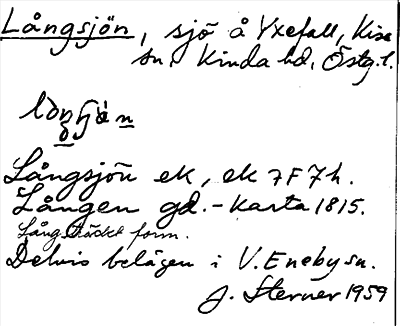 Långsjön, sjö å Yxefall, Kisa
sn, Kinda hd, Östg.l.
Långsjön ek, ek 7F7h.
Lången gd.-karta 1815.
Långsträckt form.
Delvis belägen i V. Eneby sn.
J. Sterner 1959